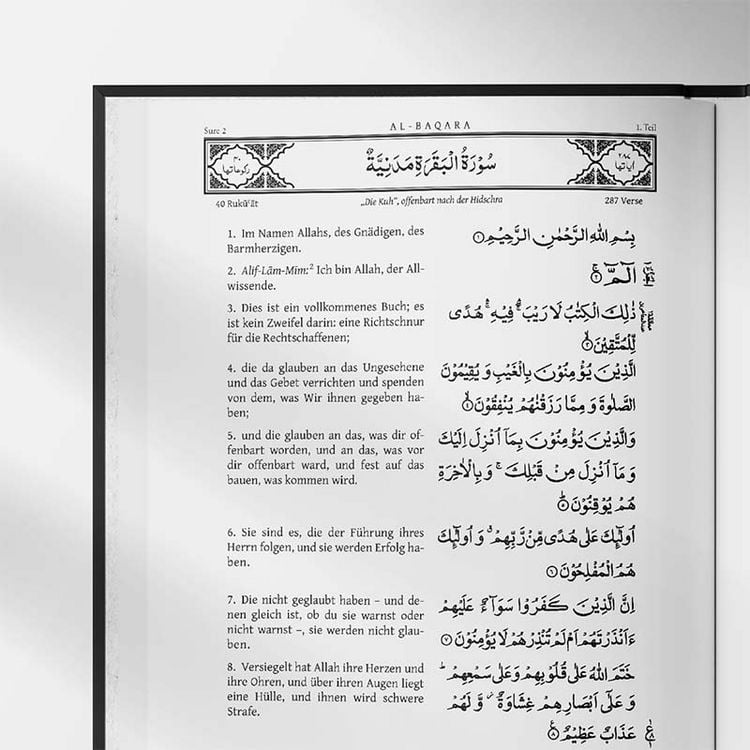 Sure 2
AL-BAQARA
1. Teil
سُوْرَةُ الْبَقَرَةِ مَدَنِيَّةٌ
40 Rukūʿāt
„Die Kuh“, offenbart nach der Hidschra
287 Verse
1. Im Namen Allahs, des Gnädigen, des
Barmherzigen.
2. Alif-Lām-Mīm:² Ich bin Allah, der All-
wissende.
3. Dies ist ein vollkommenes Buch; es
ist kein Zweifel darin: eine Richtschnur
für die Rechtschaffenen;
4. die da glauben an das Ungesehene
und das Gebet verrichten und spenden
von dem, was Wir ihnen gegeben ha-
ben;
5. und die glauben an das, was dir of-
fenbart worden, und an das, was vor
dir offenbart ward, und fest auf das
bauen, was kommen wird.
6. Sie sind es, die der Führung ihres
Herrn folgen, und sie werden Erfolg ha-
ben.
7. Die nicht geglaubt haben – und de-
nen gleich ist, ob du sie warnst oder
nicht warnst –, sie werden nicht glau-
ben.
8. Versiegelt hat Allah ihre Herzen und
ihre Ohren, und über ihren Augen liegt
eine Hülle, und ihnen wird schwere
Strafe.
بِسْمِ اللّٰهِ الرَّحْمٰنِ الرَّحِيْمِ ۱
الٓمّٓ ۲
ذٰلِكَ الْكِتٰبُ لَا رَيْبَ فِيْهِ هُدًى
لِّلْمُتَّقِيْنَ ۳
الَّذِيْنَ يُؤْمِنُوْنَ بِالْغَيْبِ وَ يُقِيْمُوْنَ
الصَّلٰوةَ وَ مِمَّا رَزَقْنٰهُمْ يُنْفِقُوْنَ ۴
وَالَّذِيْنَ يُؤْمِنُوْنَ بِمَآ اُنْزِلَ اِلَيْكَ
وَ مَآ اُنْزِلَ مِنْ قَبْلِكَ ۚ وَ بِالْاٰخِرَةِ
هُمْ يُوْقِنُوْنَ ۵
اُولٰٓئِكَ عَلٰى هُدًى مِّنْ رَّبِّهِمْ ۗ وَ اُولٰٓئِكَ
هُمُ الْمُفْلِحُوْنَ ۶
اِنَّ الَّذِيْنَ كَفَرُوْا سَوَآءٌ عَلَيْهِمْ
ءَاَنْذَرْتَهُمْ اَمْ لَمْ تُنْذِرْهُمْ لَا يُؤْمِنُوْنَ ۷
خَتَمَ اللّٰهُ عَلٰى قُلُوْبِهِمْ وَعَلٰى سَمْعِهِمْ ؕ
وَ عَلٰٓى اَبْصَارِهِمْ غِشَاوَةٌ ۫ وَّ لَهُمْ
عَذَابٌ عَظِيْمٌ ۸